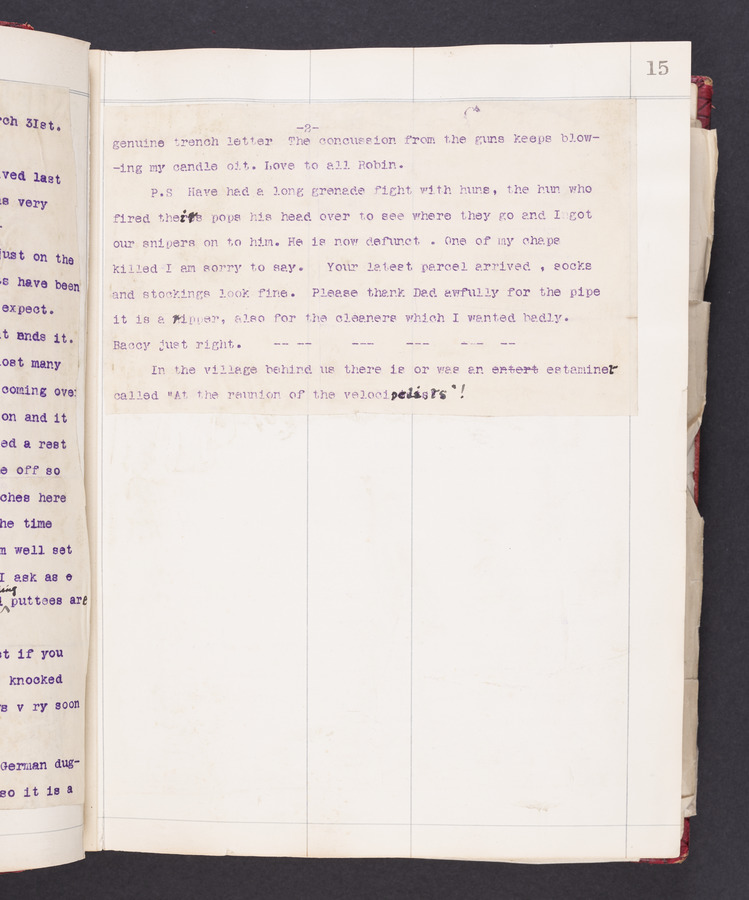 rch 31st.
ved last
s very
-
just on the
s have been
expect.
t ends it.
ost many
coming over
on and it
ed a rest
e off so
ches here
he time
m well set
I ask as e
ing
puttees are
st if you
knocked
s v ry soon
German dug-
so it is a
15
-2-
genuine trench letter The concussion from the guns keeps blow-
-ing my candle oit. Love to all Robin.
P.S Have had a long grenade fight with huns, the hun who
fired pops his head over to see where they go and I got
our snipers on to him. He is now defunct . One of my chaps
killed I am sorry to say. Your latest parcel arrived , socks
and stockings look fine. Please thank Dad awfully for the pipe
it is a ripper, also for the cleaners which I wanted badly.
Baccy just right. -- -- --- --- --- --
In the village behind us there is or was an entert estaminet
called "At the reunion of the velocipelists"!